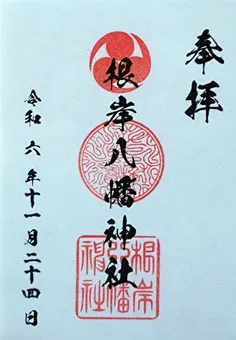 奉拝
根岸八幡神社
令和六年十一月二十四日
根岸
八幡
神社